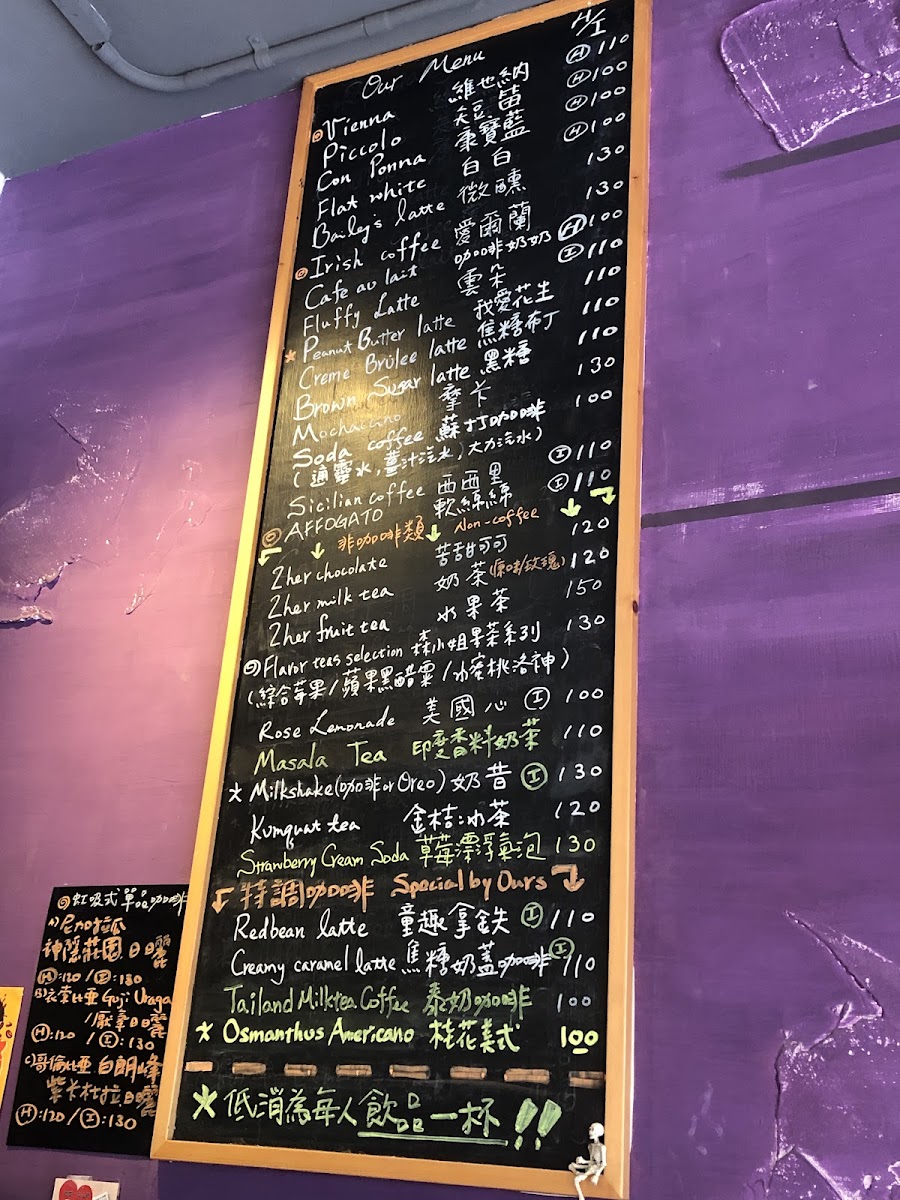 Our Menu H/I
Vienna 維也納 Ⓗ 110
Piccolo 大豆苗 Ⓗ 100
Con Ponna 康寶藍 Ⓗ 100
Flat white 白白 Ⓗ 100
Bailey's latte 微醺 130
Irish coffee 愛爾蘭 130
Cafe au lait 咖啡奶奶 Ⓗ 100
Fluffy Latte 雲朵 Ⓘ 110
★ Peanut Butter latte 我愛花生 110
Creme Brûlee latte 焦糖布丁 110
Brown Sugar latte 黑糖 110
Mochaccino 摩卡 130
Soda coffee 蘇打咖啡 100
(通靈水,薑汁汽水,大力汽水)
Sicilian coffee 西西里 Ⓘ 110
AFFOGATO 軟綿綿 Ⓘ 110
非咖啡類 Non-coffee
2her chocolate 苦甜可可 120
2her milk tea 奶茶(原味/玫瑰) 120
2her fruit tea 水果茶 150
Flavor teas selection 森小姐果茶系列 130
(綜合莓果/蘋果黑醋栗/水蜜桃洛神)
Rose Lemonade 美國心 Ⓘ 100
Masala Tea 印度香料奶茶 110
★ Milkshake(咖啡or Oreo) 奶昔 Ⓘ 130
Kumquat tea 金桔冰茶 120
Strawberry Cream Soda 草莓漂浮氣泡 130
特調咖啡 Special by Ours
Redbean latte 童趣拿鉄 Ⓘ 110
Creamy caramel latte 焦糖奶蓋咖啡 Ⓘ 110
Tailand Milktea Coffee 泰奶咖啡 100
★ Osmanthus Americano 桂花美式 100
★低消為每人飲品一杯!!
虹吸式單品咖啡
A)尼加拉瓜
神隱莊園.日曬
Ⓗ:120/Ⓘ:130
B)衣索比亞 Guji Uraga
日曬
Ⓗ:120/Ⓘ:130
C)哥倫比亞 白朗峰
日曬
Ⓗ:120/Ⓘ:130